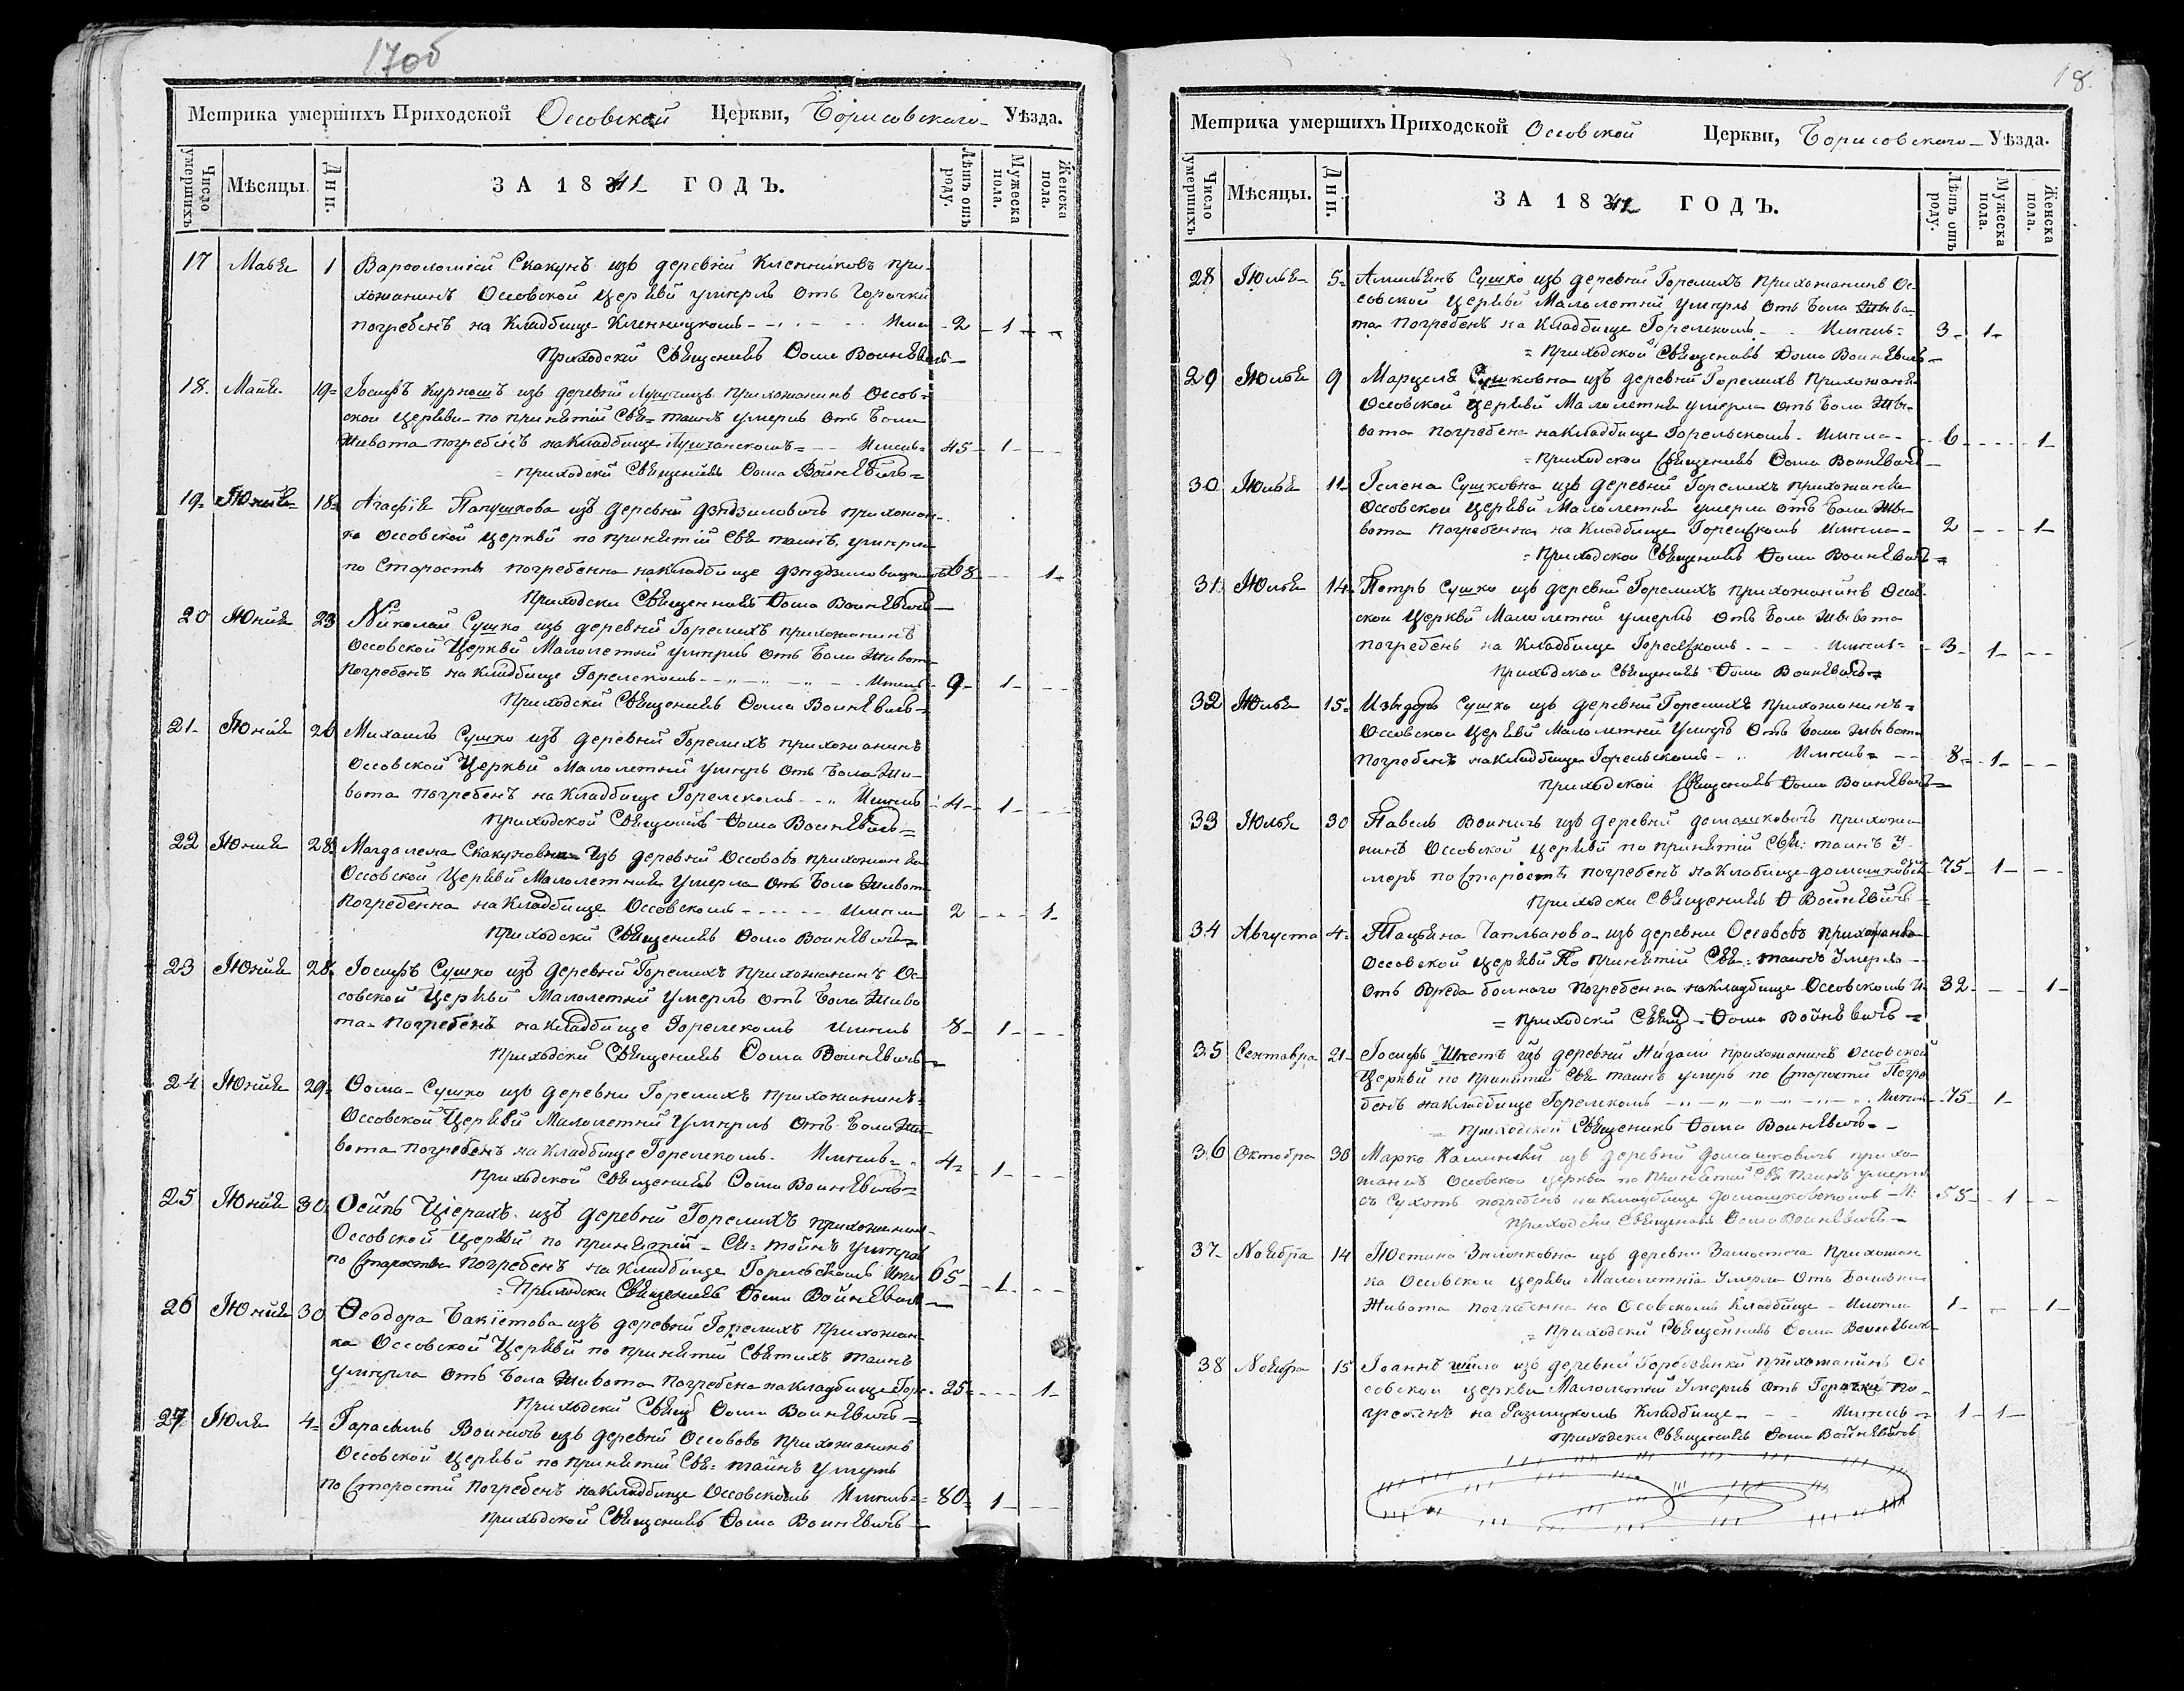 17об
Метрика умершихъ Приходской Оссовской Церкви, Борисовскаго Уѣзда.
Число умершихъ
Мѣсяцы.
Дни.
ЗА 1841 ГОДЪ.
Лѣтъ отъ роду.
Мужеска пола.
Женска пола.
17 Маья 1 Варѳоломей Скакунъ изъ деревни Кленниковъ при-
хожанинъ Оссовской церкви умеръ отъ горачки
погребенъ на кладбище Кленницкомъ Имел 2 1
Приходскій Священикъ Ѳома Воиневичъ
18. Маия. 19 Іосифъ Курношъ изъ деревни прихожанинъ Оссов-
ской церкви по принятіи Свя= таинъ умерлъ отъ бола
живота погребенъ на кладбище Имелъ 45 1
приходскій Священикъ Ѳома Войневичъ
19 Юнія 18 Агафія Папушкова изъ деревни прихожан-
ка Оссовской церкви по принятіи Свя таинъ, умерла
по старости погребенна на кладбище 68 1
Приходски Священникъ Ѳома Воиневичъ
20 Юния 23 Николай Сушко изъ деревни Горелихъ прихожанинъ
Оссовской Церкви Малолетний умерлъ отъ бола живота
погребенъ на кладбище Горелскомъ Имелъ 9 1
Приходски Священикъ Ѳома Воиневичъ
21 Юнія 26 Михаилъ Сушко изъ деревни Горелихъ прихожанинъ
Оссовской Церкви малолетний умеръ отъ бола жи-
вота погребенъ на кладбище Горелскомъ Имелъ 4 1
приходской Священикъ Ѳома Воиневичъ
22 Юния 28 Магдалена Скакуновна изъ деревни Оссововъ прихожанка
Оссовской Церкви Малолетняя умерла отъ бола живота
погребенна на кладбище Оссовскомъ Имела 2 1
приходски Священикъ Ѳома Воиневичъ
23 Юния 28 Іосифъ Сушко изъ деревни Горелихъ прихожанинъ Ос-
совской Церкви Малолетний умерлъ отъ бола живо
та погребенъ на кладбище Горелскомъ Имелъ 8 1
приходски Священикъ Ѳома Воиневичъ
24 Юния 29 Ѳома Сушко изъ деревни Горелихъ прихожанинъ
Оссовской Церкви Малолетний умерлъ отъ бола жи-
вота погребенъ на кладбище Горелскомъ Имелъ 4 1
приходской Священикъ Ѳома Воиневичъ
25 Юния 30 Осипъ изъ деревни Горелихъ прихожанинъ
Оссовской Церкви по принятии Св: тайнъ умерлъ
по старости погребенъ на кладбище Горельскомъ Имел 65 1
Приходски Священикъ Ѳома Войневичъ
26 Юния 30 Ѳеодора изъ деревни Горелихъ прихожан-
ка Оссовской Церкви по принятии Святихъ таинъ
умерла отъ бола живота погребена на кладбище Горе 25 1
приходски Свящ Ѳома Воиневичъ
27 Юля 4 Гарасимъ Воиничъ изъ деревни Оссововъ прихожанинъ
Оссовской церкви по принятии Свя= тайнъ умерлъ
по старости погребенъ на кладбище Оссовскомъ Имелъ 80 1
приходской Священикъ Ѳома Воиневичъ
18.
Метрика умершихъ Приходской Оссовской Церкви, Борисовскаго Уѣзда.
Число умершихъ
Мѣсяцы.
Дни.
ЗА 1841 ГОДЪ.
Лѣтъ отъ роду.
Мужеска пола.
Женска пола.
28 Юлья 5 Сушко изъ деревни Горелихъ прихожанинъ Ос-
совской церкви Малолетний умерлъ отъ бола жыво-
та погребенъ на кладбище Горелскомъ Имелъ 3 1
Приходской Священикъ Ѳома Воиневичъ
29 Юлья 9 Марцеля Сушковна изъ деревни Горелихъ прихожанка
Оссовской церкви Малолетня умерла отъ бола жы-
вота погребена на кладбище Горельскомъ Имела 6 1
приходской Священикъ Ѳома Воиневичъ
30 Юлья 11 Гелена Сушковна изъ деревни Горелихъ прихожанка
Оссовской церкви Малолетня умерла отъ бола жы-
вота погребенна на кладбище Горелскомъ Имела 2 1
приходской Священикъ Ѳома Воиневичъ
31 Юлья 14 Петръ Сушко изъ деревни Горелихъ прихожанинъ Оссов-
ской церкви Малолетний умерлъ отъ бола жывота
погребенъ на кладбище Горелскомъ Имелъ 3 1
приходской Священикъ Ѳома Воиневичъ
32 Юлья 15 Изыдоръ Сушко изъ деревни Горелихъ прихожанинъ
Оссовской церкви Малолетний умеръ отъ бола жывота
погребенъ на кладбище Горельскомъ Имелъ 8 1
приходской Священикъ Ѳома Воиневичъ
33 Юлья 30 Павелъ Воиничъ изъ деревни домашковичъ прихожа
нинъ Оссовской церкви по принятии Свя: таинъ у-
меръ по старости погребенъ на клабище 75 1
приходски Священикъ Ѳ Войневичъ
34 Августа 4 Тацьяна изъ деревни Оссововъ прихожанка
Оссовской церкви по принятии Свя: таинъ умерла
отъ погребенна на кладбище Оссовскомъ И 32 1
приходски Свящ Ѳома Войневичъ
35 Сентабра 21 Іосифъ изъ деревни прихожанинъ Оссовской
Церкви по принятии Свя таинъ умеръ по старости погре
бенъ на кладбище Горелскомъ Имелъ 75 1
приходской Священикъ Ѳома Воиневичъ
36 Октобра 30 Марко Каминский изъ деревни домашковичъ прихо-
жанинъ Оссовской церкви по принятии Свя таинъ умерлъ
съ сухотъ погребенъ на кладбище И: 55 1
приходски Священикъ Ѳома Воиневичъ
37 Ноебра 14 Юстина изъ деревни Замосточа прихожан
ка Оссовской церкви Малолетнія умерла отъ
живота погребенна на Осовскомъ кладбище Имела 1 1
приходски Священникъ Ѳома Воиневичъ
38 Ноебра 15 Іоаннъ Шило изъ деревни прихожанинъ Ос
совской церкви Малолетний умерлъ отъ горачки по-
гребенъ на кладбище Имелъ 1 1
приходски Священикъ Ѳома Войневичъ